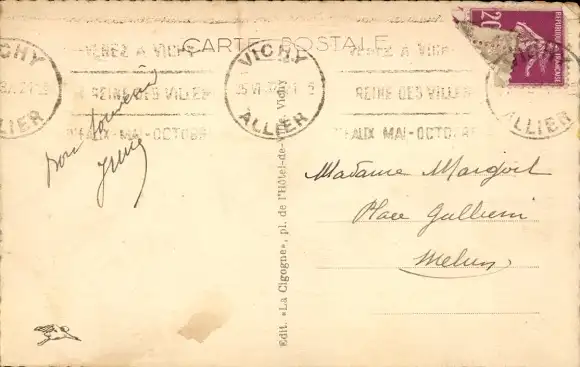 CARTE POSTALE
VENEZ A VICHY
REINE DES VILLES
D'EAUX-MAI-OCTOBRE
VICHY
ALLIER
VENEZ A VICHY
REINE DES VILLES
D'EAUX-MAI-OCTOBRE
VICHY
ALLIER
20
REPUBLIQUE FRANÇAISE
Bon souvenir
Madame Margoit
Place Gallieni
Melun
Edit. «La Cigogne», pl. de l'Hôtel-de-Ville, Vichy